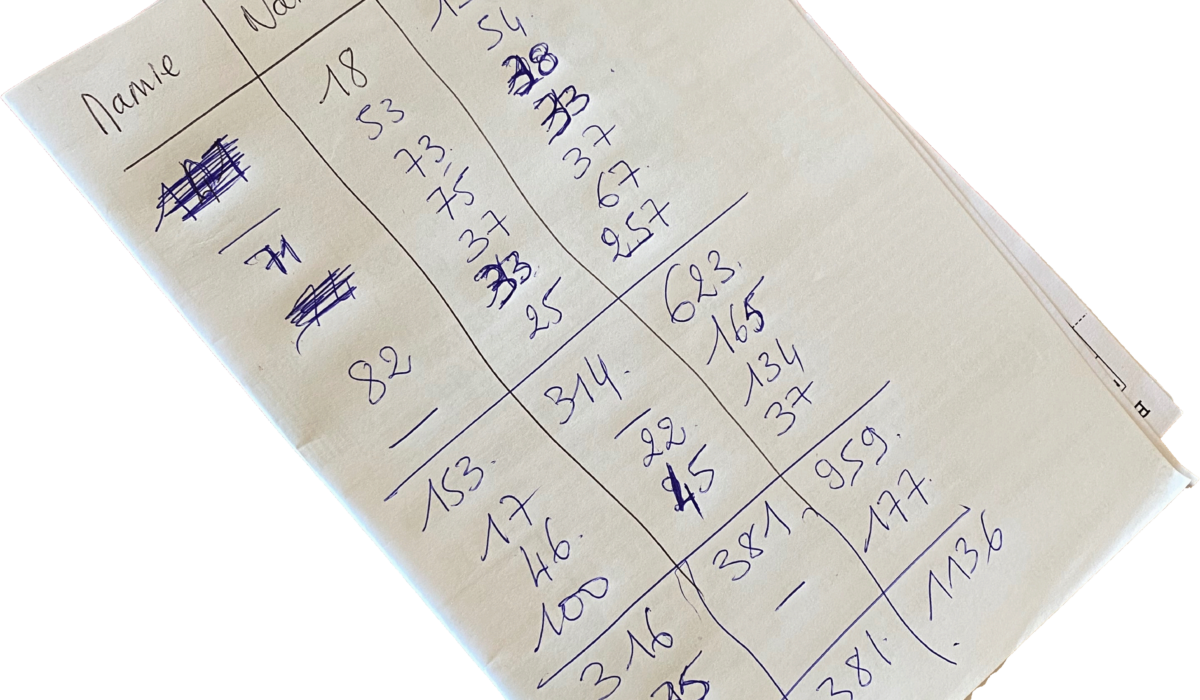 Namie
71
82
153.
17
46.
100
316
18
53
73.
75
37
33
25
314.
22
45
381.
381.
54
38
33
37
67.
257
623.
165
134
37
959.
177.
1136